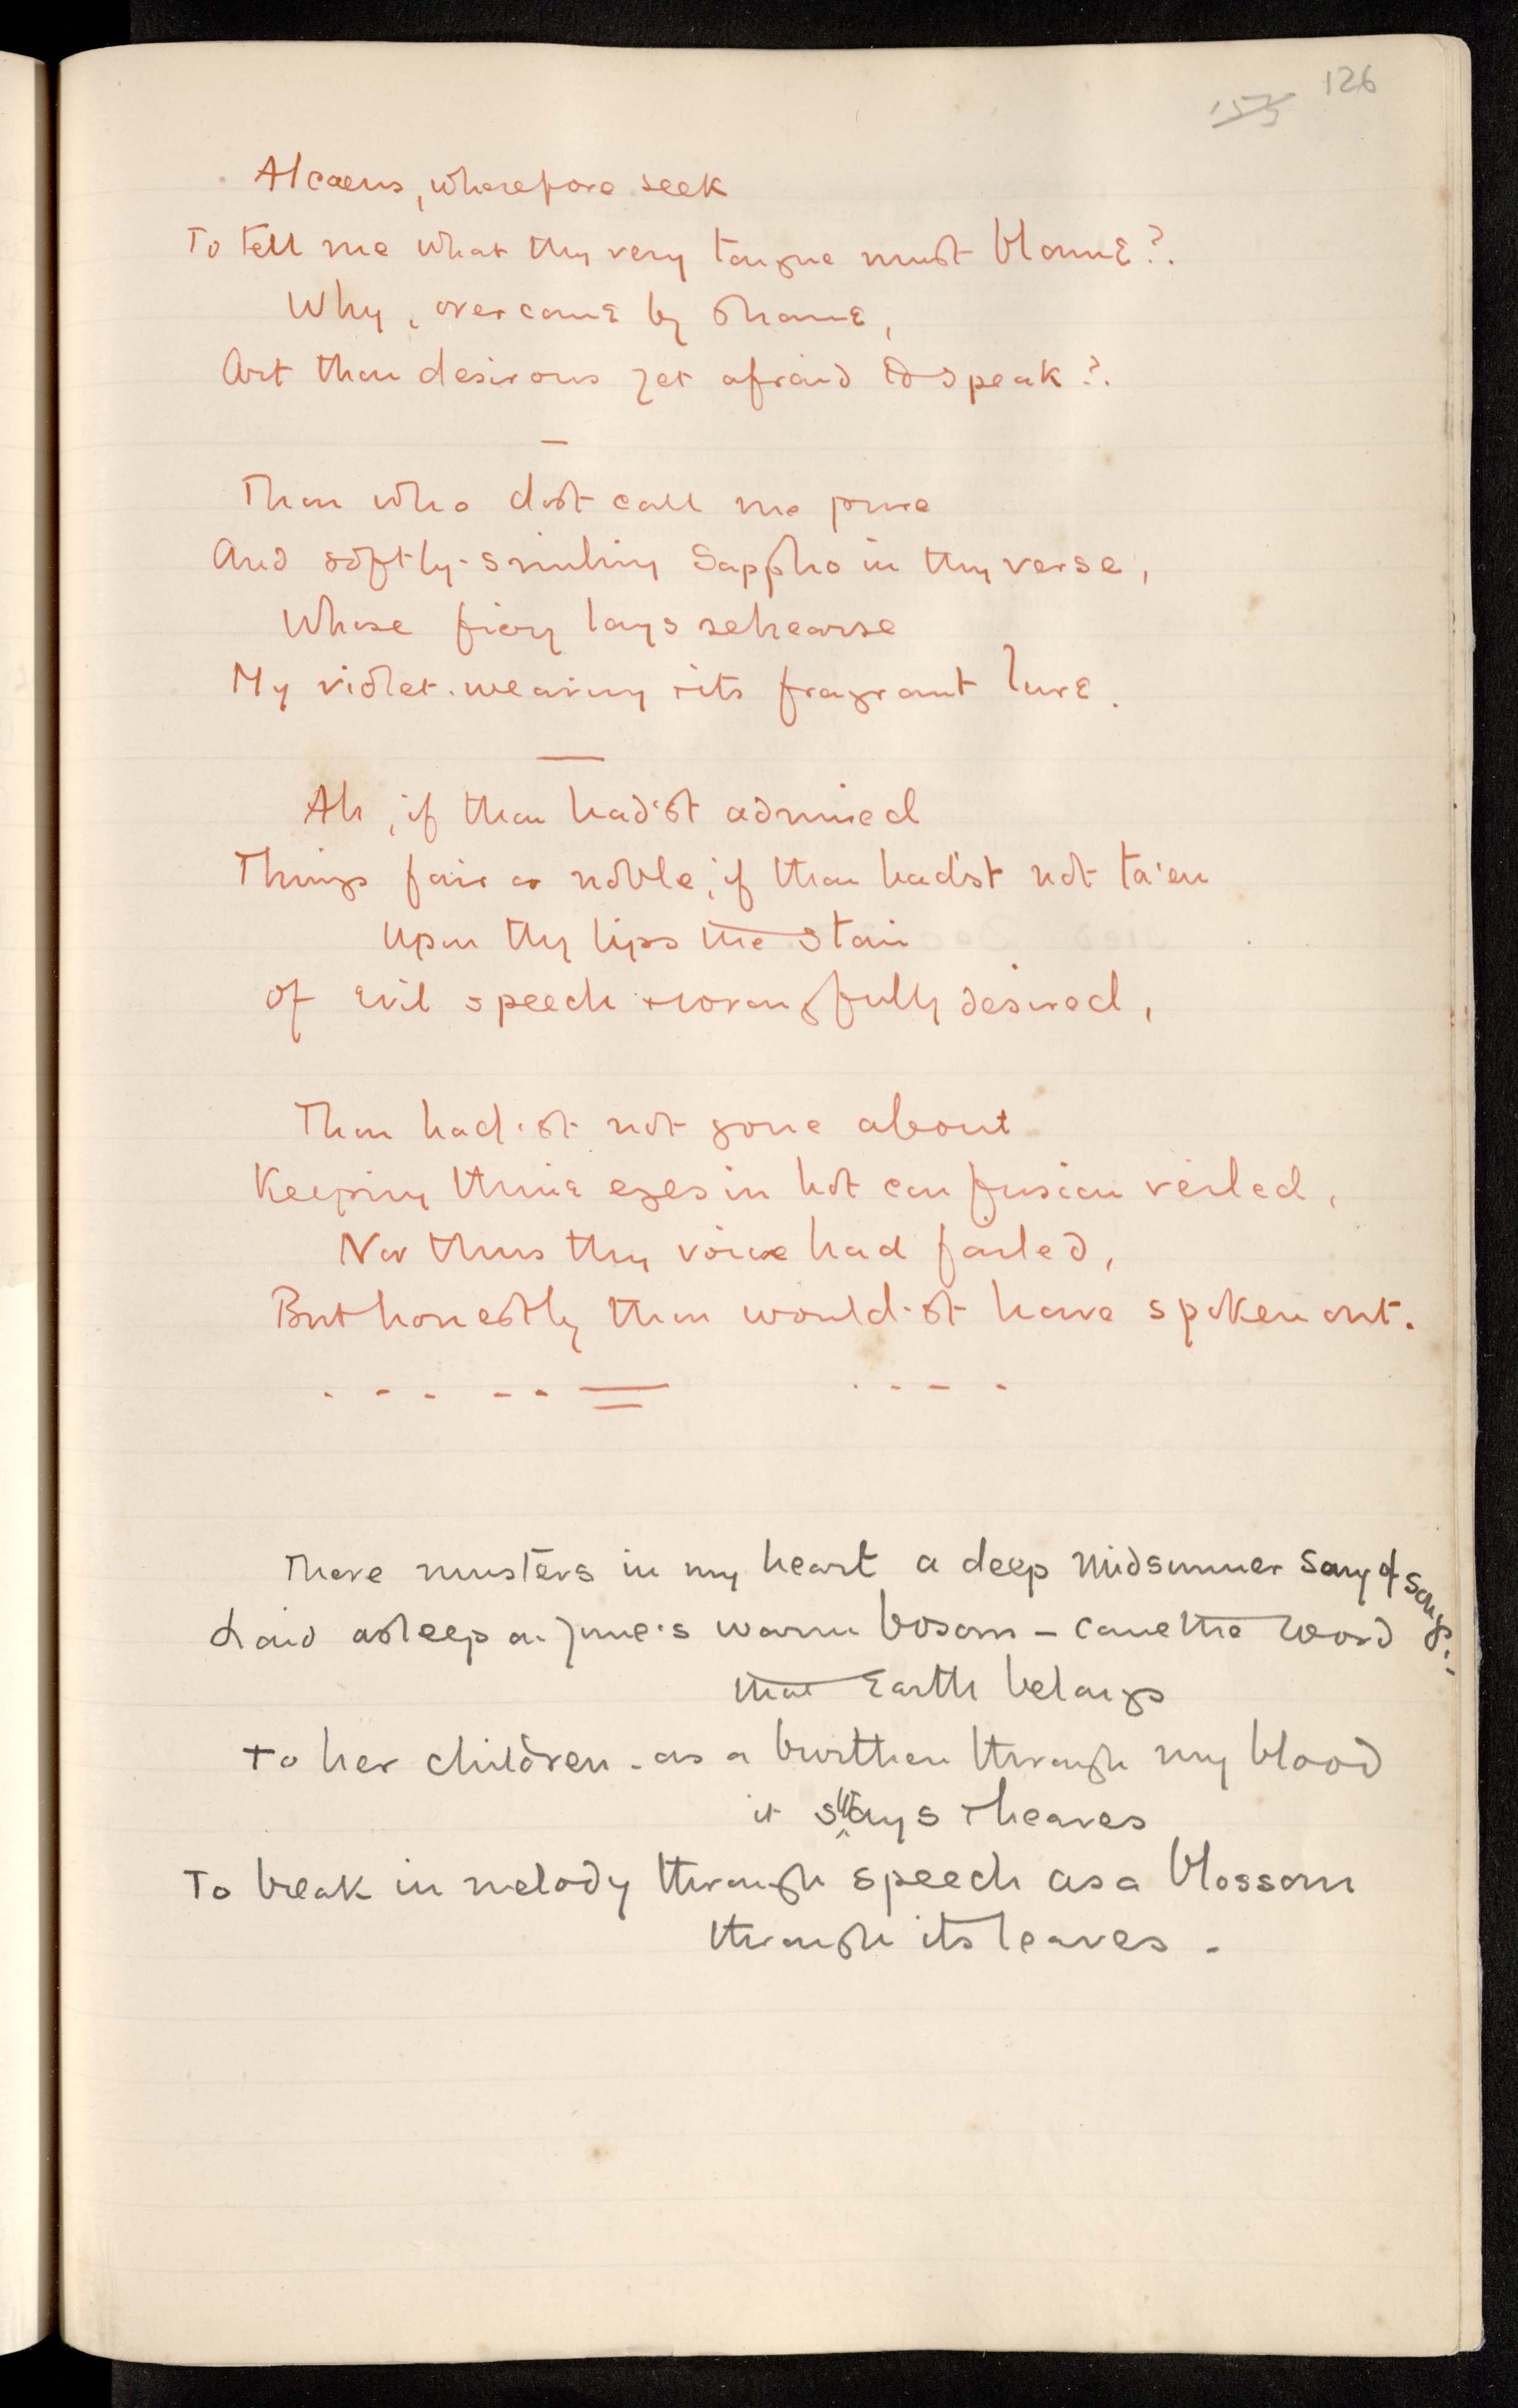 126
155
Alcaeus, wherefore seek
To tell me what thy very tongue must blame?
Why, overcome by shame,
Art thou desirous yet afraid to speak?
Thou who dost call me pure
And softly-smiling Sappho in thy verse,
Whose fiery lays rehearse
My violet-weaving & its fragrant lure.
Ah, if thou had'st admired
Things fair or noble, if thou hads't not ta'en
Upon thy lips the stain
Of evil speech & wrongfully desired,
Thou had'st not gone about
Keeping thine eyes in hot confusion veiled,
Nor thus thy voice had failed,
But honestly thou would'st have spoken out.
There musters in my heart a deep midsummer song of songs:-
Laid asleep on June's warm bosom - came the word
that Earth belongs
To her children - as a burthen through my blood
it stays & heaves
To break in melody through speech as a blossom
through its leaves -